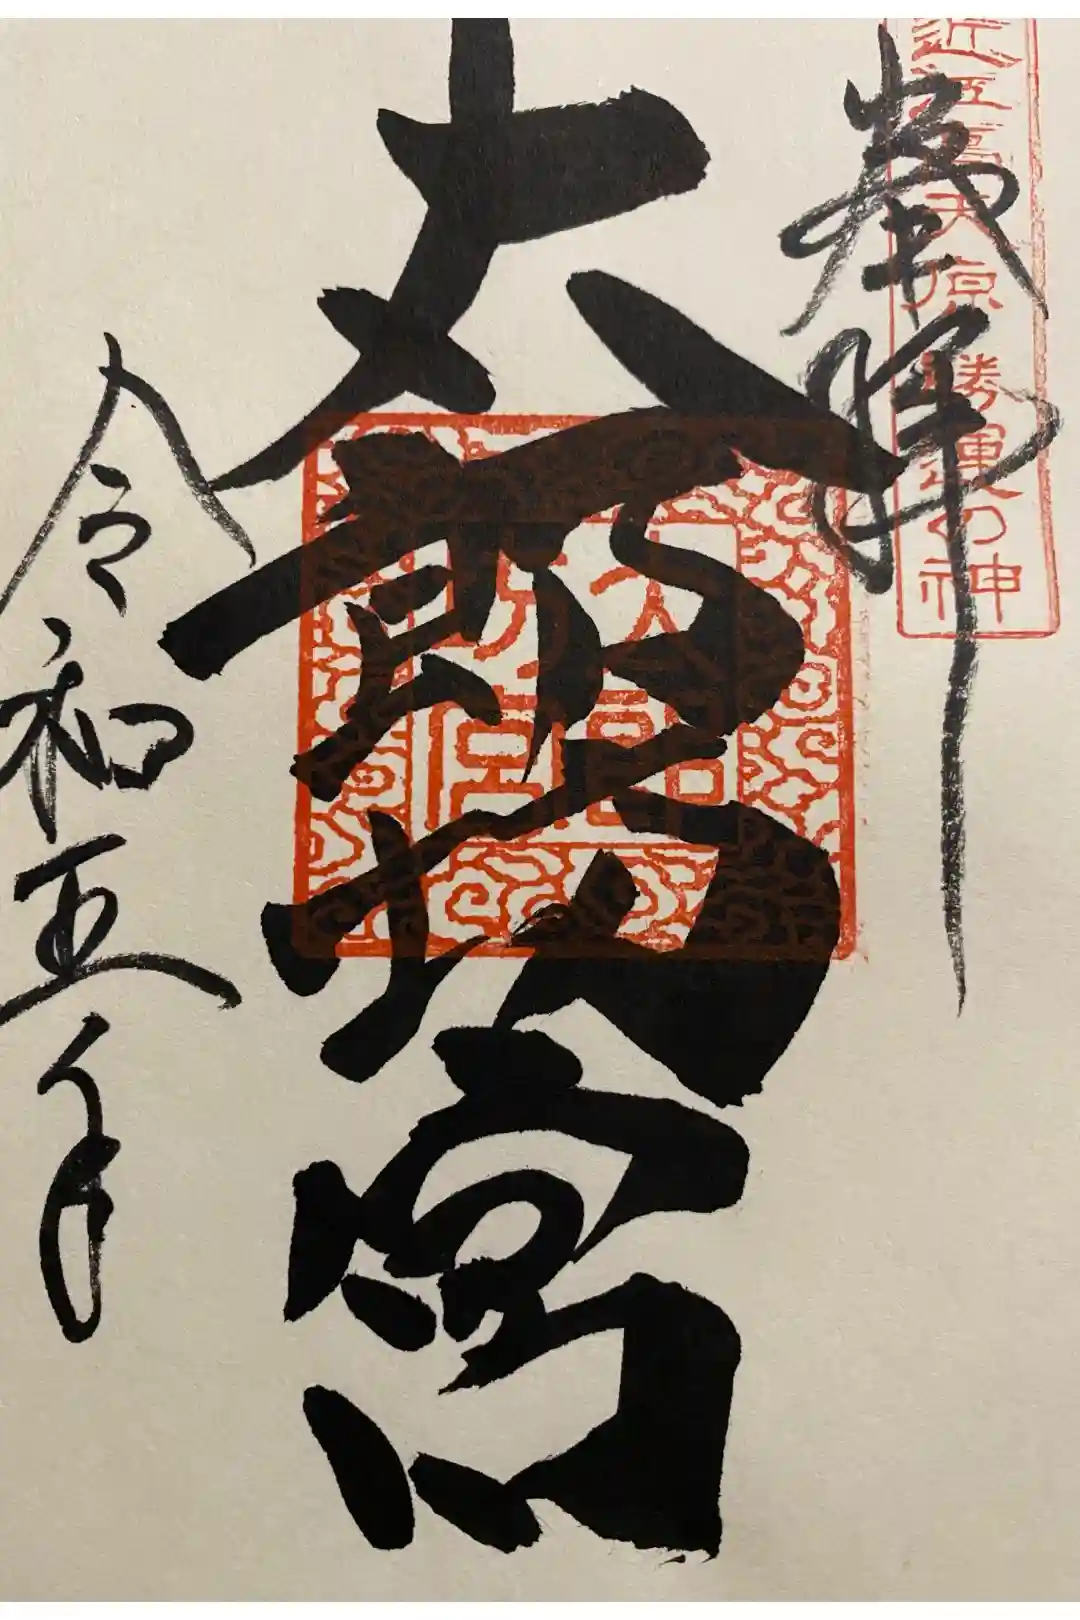 近江高天原勝運の神
奉拝
太郎坊宮
令和五年